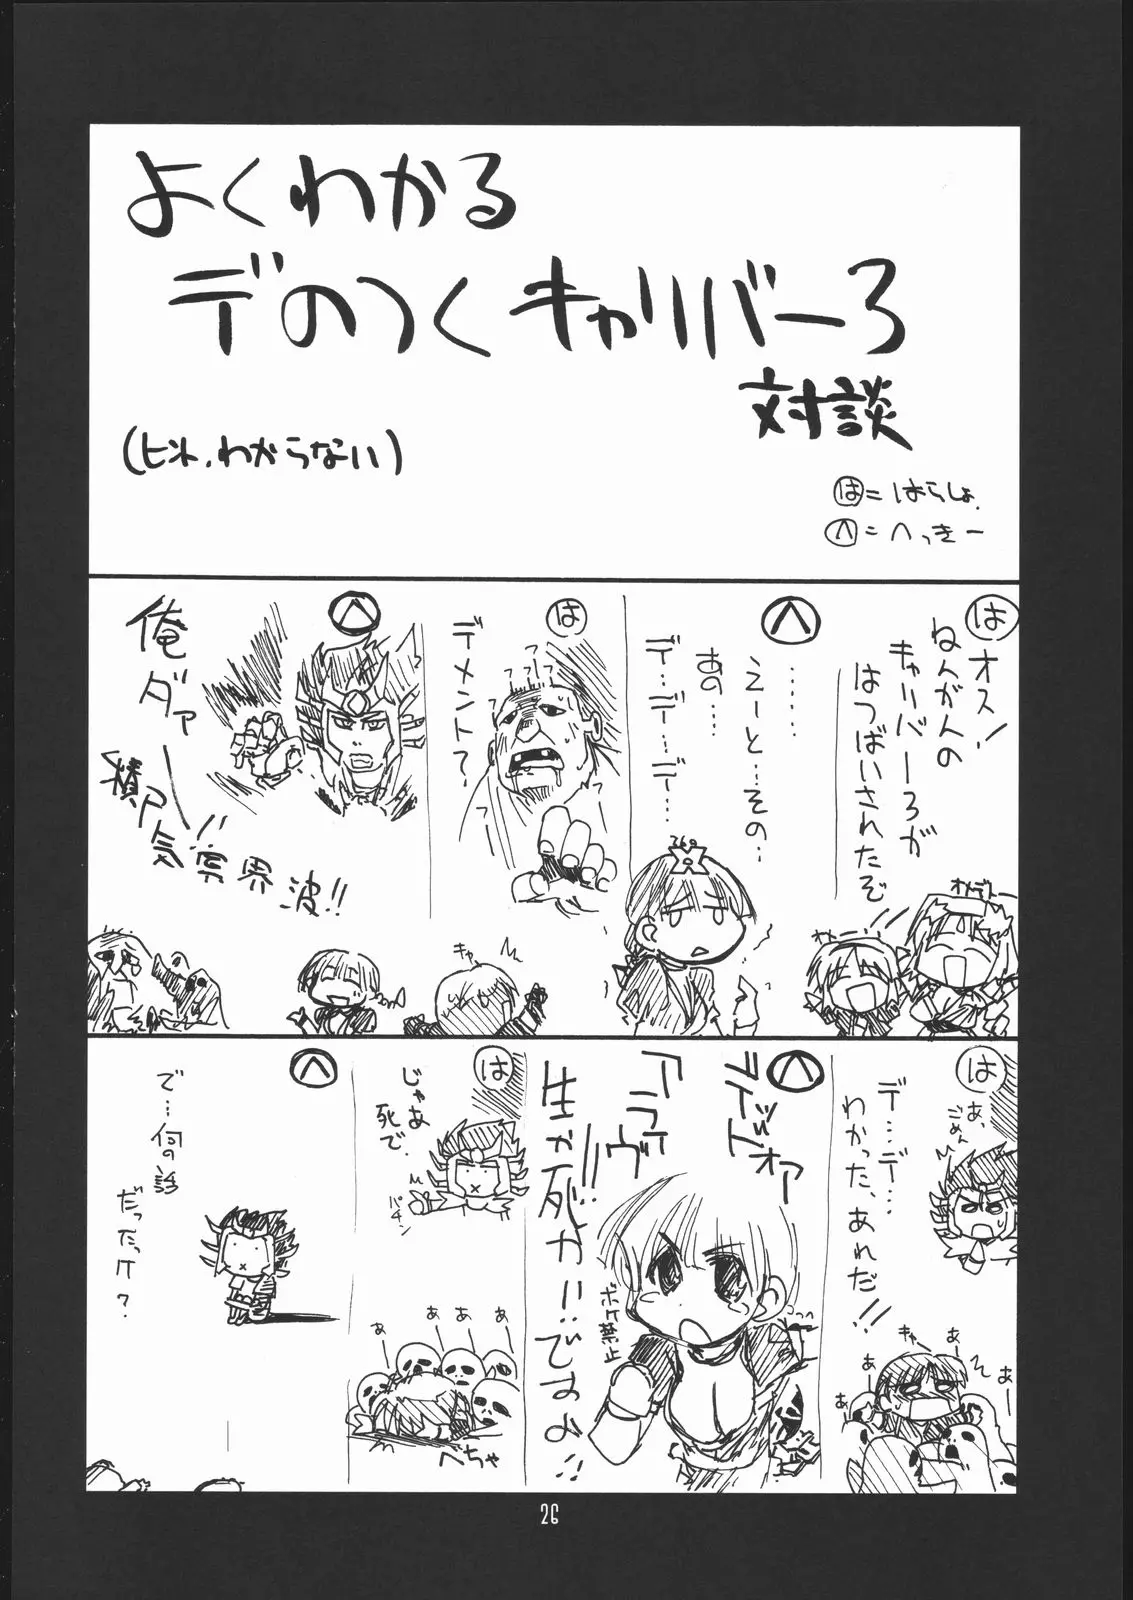 よくわかる
デのつくキャリバー3
対談
(ヒント、わからない)
は=はらしょ
へ=へっきー
は
オス!
ねんがんの
キャリバー3が
はつばいされたぞ
オメデトー
へ
……
えーと…その…
あの…
デ…デ…デ…
は
デメント?
????
キャー
へ
俺ダァー!!
積尸気冥界波!!
は
あ、
ごめん
デ…デ…
わかった、あれだ!!
キャー
あー
あー
あー
あー
へ
デッドオア
アライヴ
生か死か!!ですよ!!
ボケ禁止
は
じゃあ
死で。
パチン
あぁ
あぁ
あぁ
あぁ
へちゃ
へ
で…何の話
だったっけ?
26